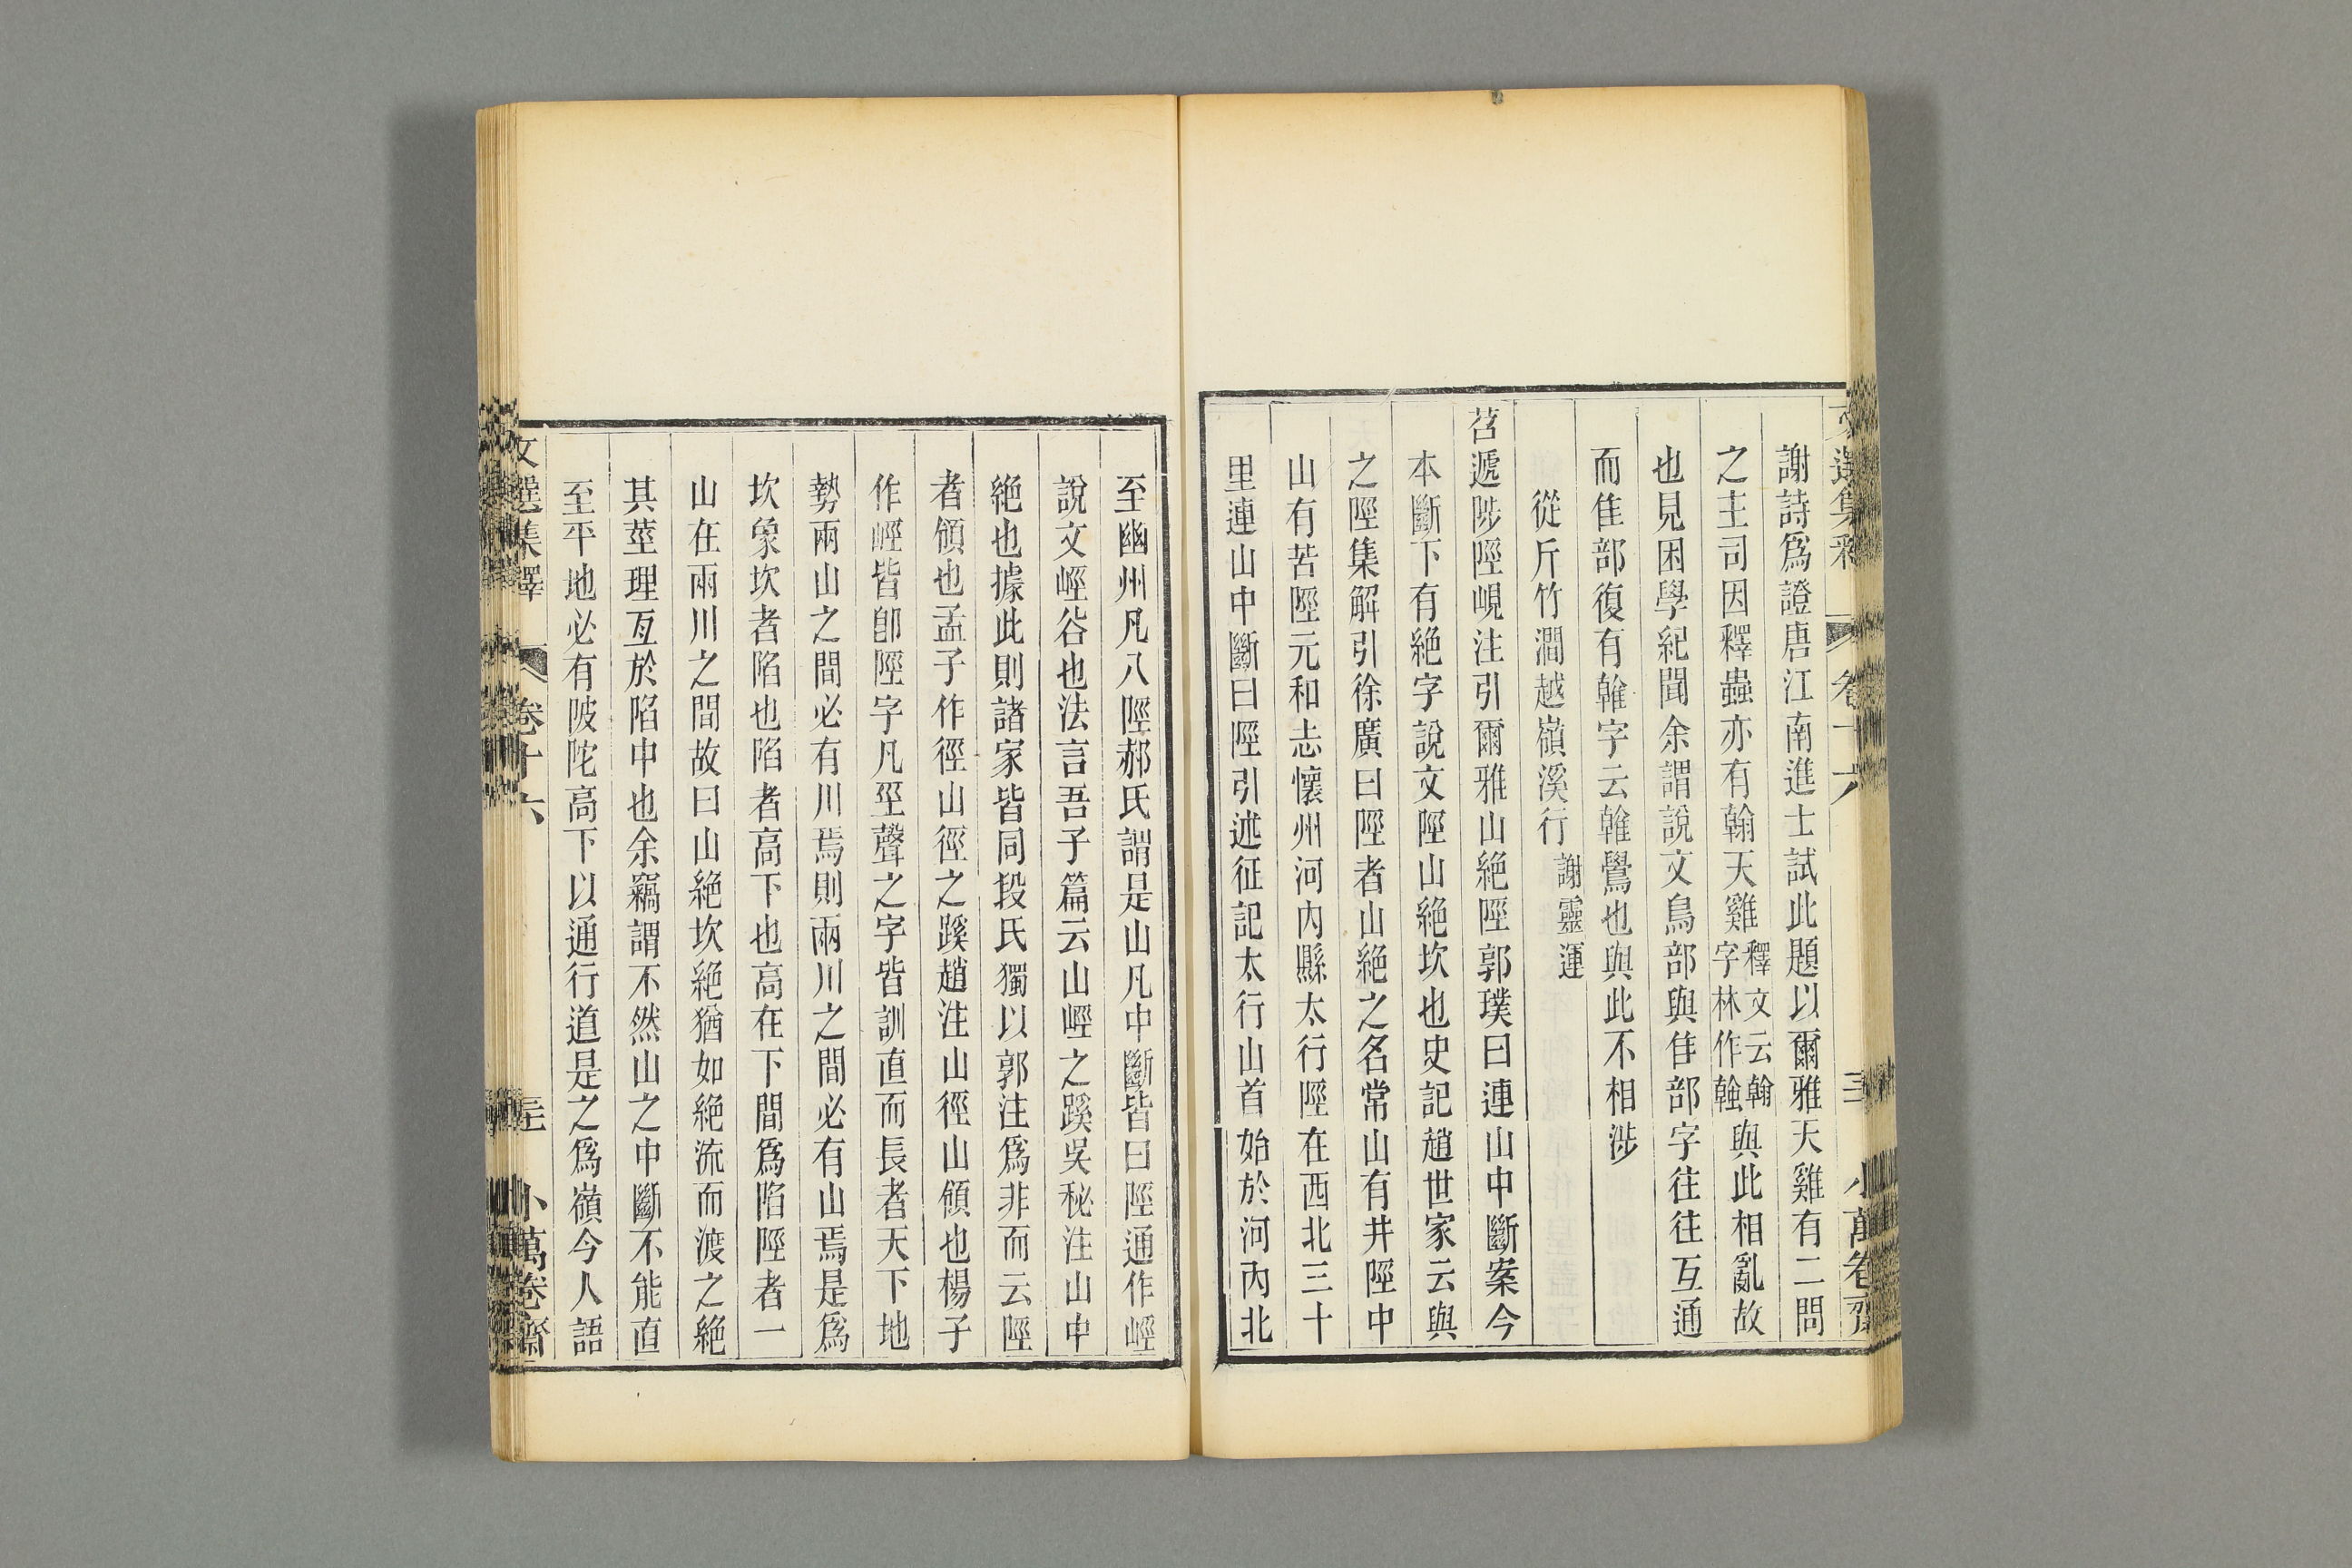 謝詩爲證唐江南進士試此題以爾雅天雞有二問
之主司因釋蟲亦有翰天雞釋文云翰字林作螒與此相亂故
也見困學紀聞余謂說文鳥部與隹部字往往互通
而隹部復有雗字云雗鷽也與此不相涉
從斤竹澗越嶺溪行謝靈運
苕遞陟陘峴注引爾雅山絕陘郭璞曰連山中斷案今
本斷下有絕字說文陘山絕坎也史記趙世家云與
之陘集解引徐廣曰陘者山絕之名常山有井陘中
山有苦陘元和志懷州河內縣太行陘在西北三十
里連山中斷曰陘引述征記太行山首始於河內北
文選集釋
卷十六
小萬卷齋
至幽州凡八陘郝氏謂是山凡中斷皆曰陘通作㟰
說文㟰谷也法言吾子篇云山㟰之蹊吳祕注山中
絕也據此則諸家皆同段氏獨以郭注爲非而云陘
者領也孟子作徑山徑之蹊趙注山徑山領也楊子
作㟰皆卽陘字凡巠聲之字皆訓直而長者天下地
勢兩山之間必有川焉則兩川之間必有山焉是爲
坎象坎者陷也陷者高下也高在下間爲陷陘者一
山在兩川之間故曰山絕坎絕猶如絕流而渡之絕
其莖理亙於陷中也余竊謂不然山之中斷不能直
至平地必有陂陀高下以通行道是之爲嶺今人語
文選集釋
卷十六
小萬卷齋